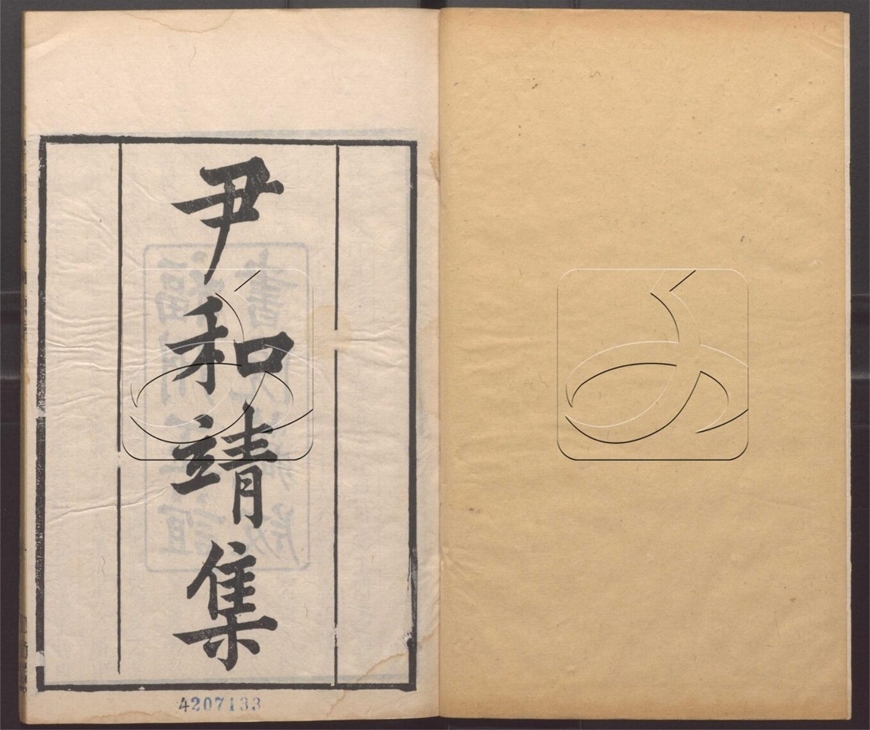 尹和靖集
4207133